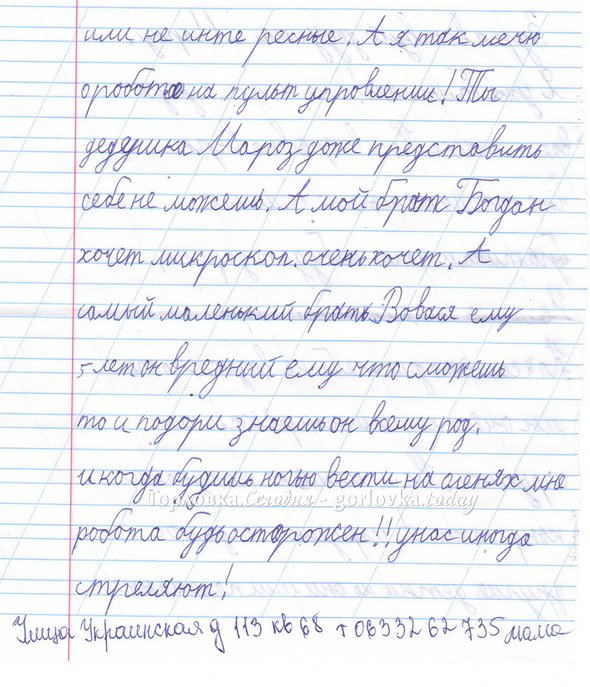 или не инте ресные. А я так мечю
о роботе на пульт упровлении! Ты
дедушка Мароз доже представить
себе не можешь. А мой брат Богдан
хочет микроскоп. очень хочет. А
самый маленький брать Вовася ему
5 лет он вредный ему что сможешь
то и подори знаешь он всему род.
и когда будишь ночью вести на оленях мне
Горловка.Сегодня - gorlovka.today
робота будь осторожен!! у нас иногда
стреляют!
Улица Украинская д 113 кв 68 т 0633262735 мама